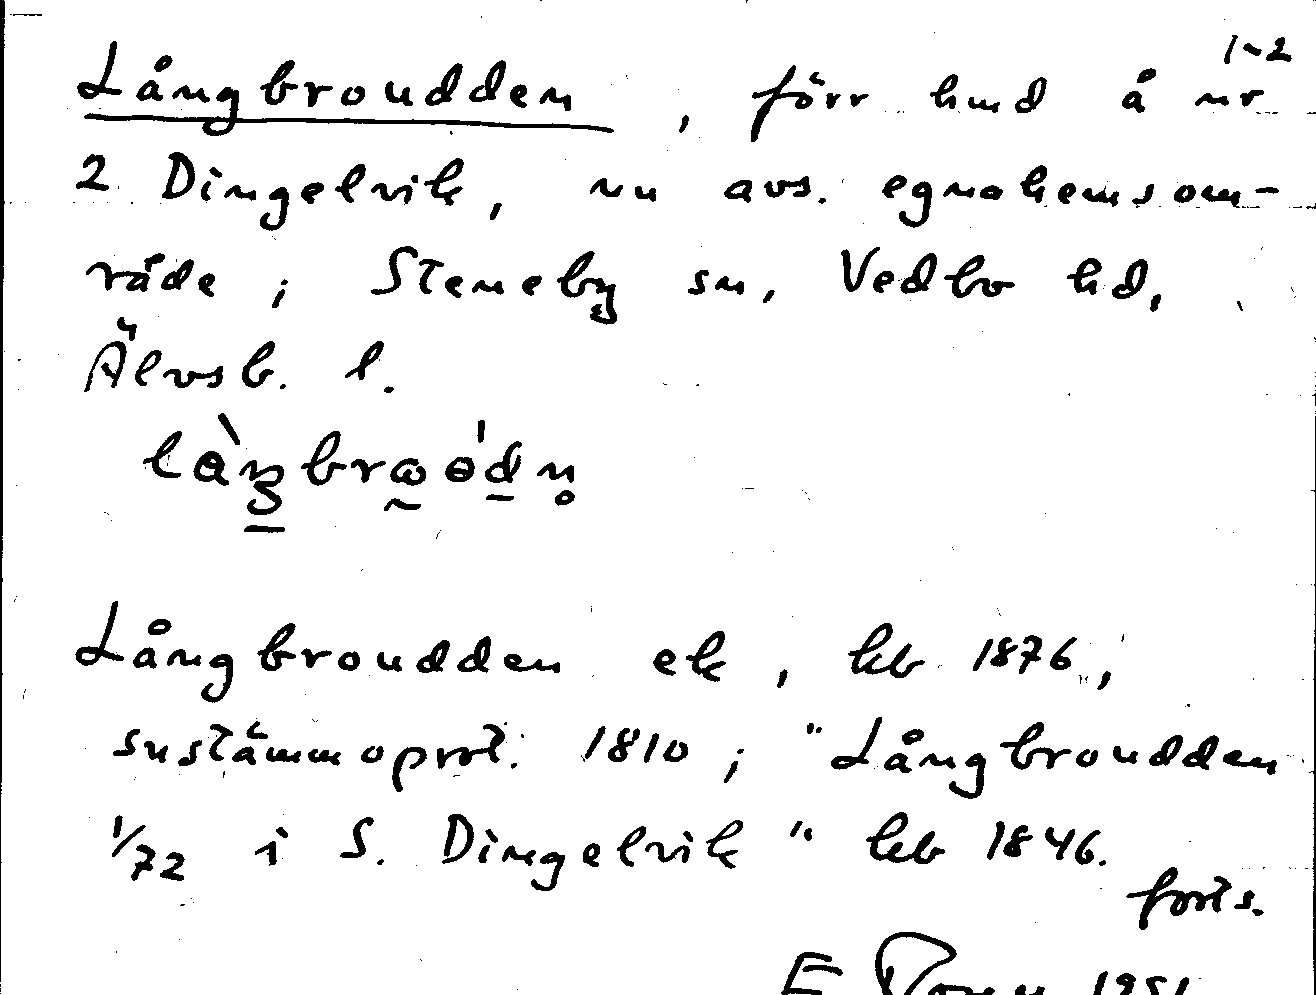 1-2
Långbroudden, förr hmd å nr
2 Dingelvik, nu avs. egnahemsom-
råde; Steneby sn, Vedbo hd,
Älvsb. l.
Långbroudden ek, kb 1876,
sustämmoprot. 1810; "Långbroudden
1/72 i S. Dingelvik" kb 1846.
forts.
E 1951